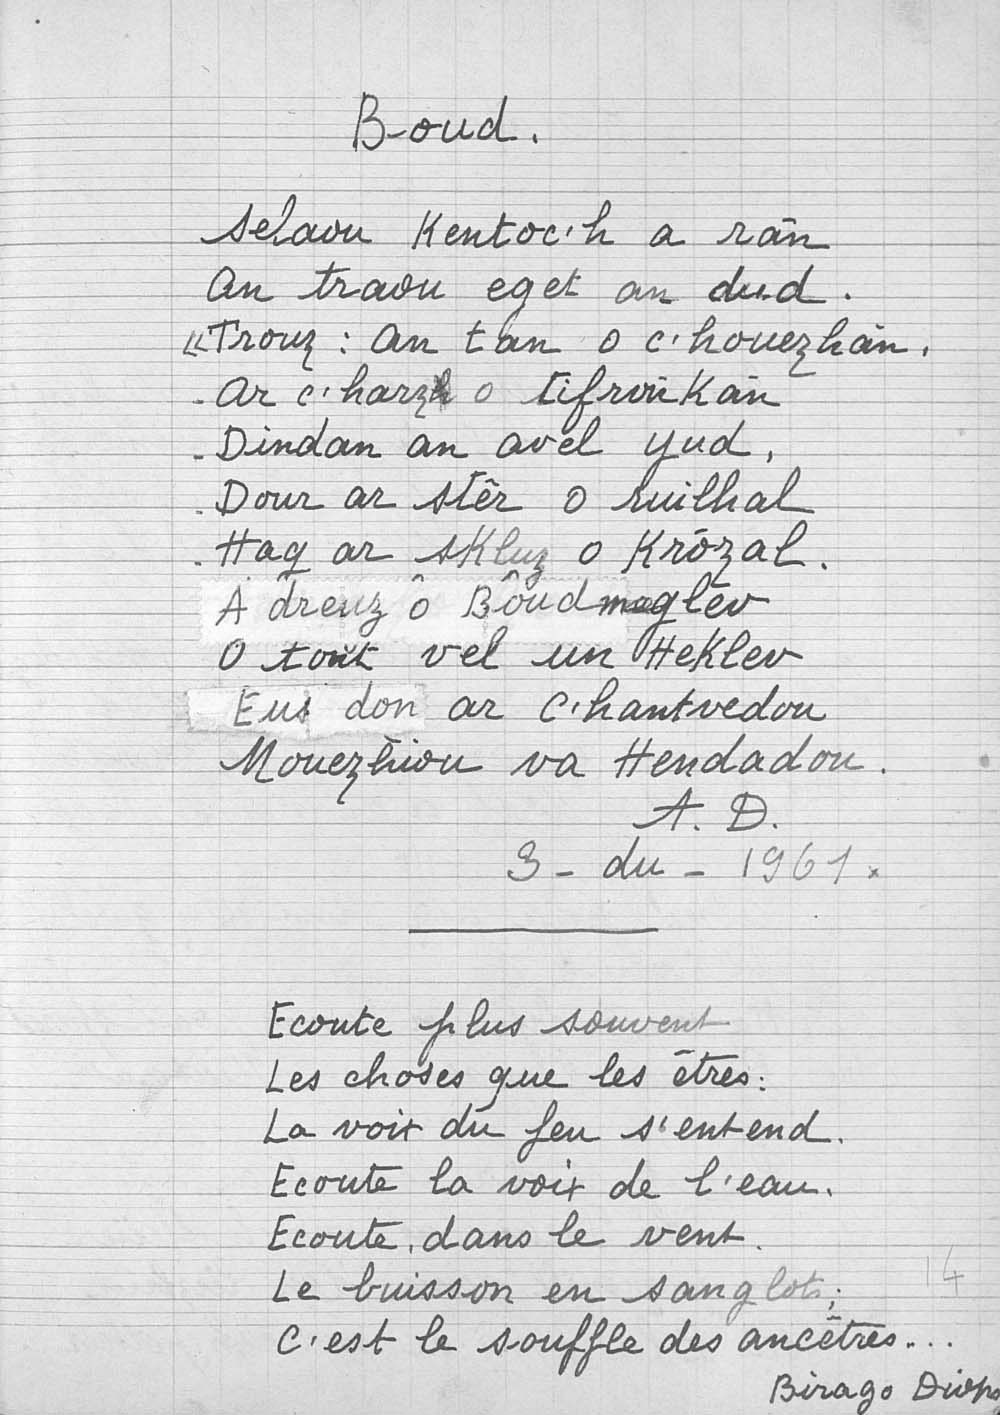 Boud.
Selaou Kentoc'h a rān
An traou eget an dud.
"Trouz: An tan o c'houezhān.
- Ar c'harzh o tifronkān
- Dindan an avel yud,
- Dour ar stēr o ruilhal
- Hag ar skluz o Krōzal.
A dreuz ô Bôud meglēv
O tont vel un Heklev
Eus don ar C'hantvedou
Mouezhiou va Hendadou.
A. D.
3 - du - 1961.
Ecoute plus souvent
Les choses que les êtres:
La voix du feu s'entend.
Ecoute la voix de l'eau.
Ecoute, dans le vent.
Le buisson en sanglots;
C'est le souffle des ancêtres...
Birago Diop
14